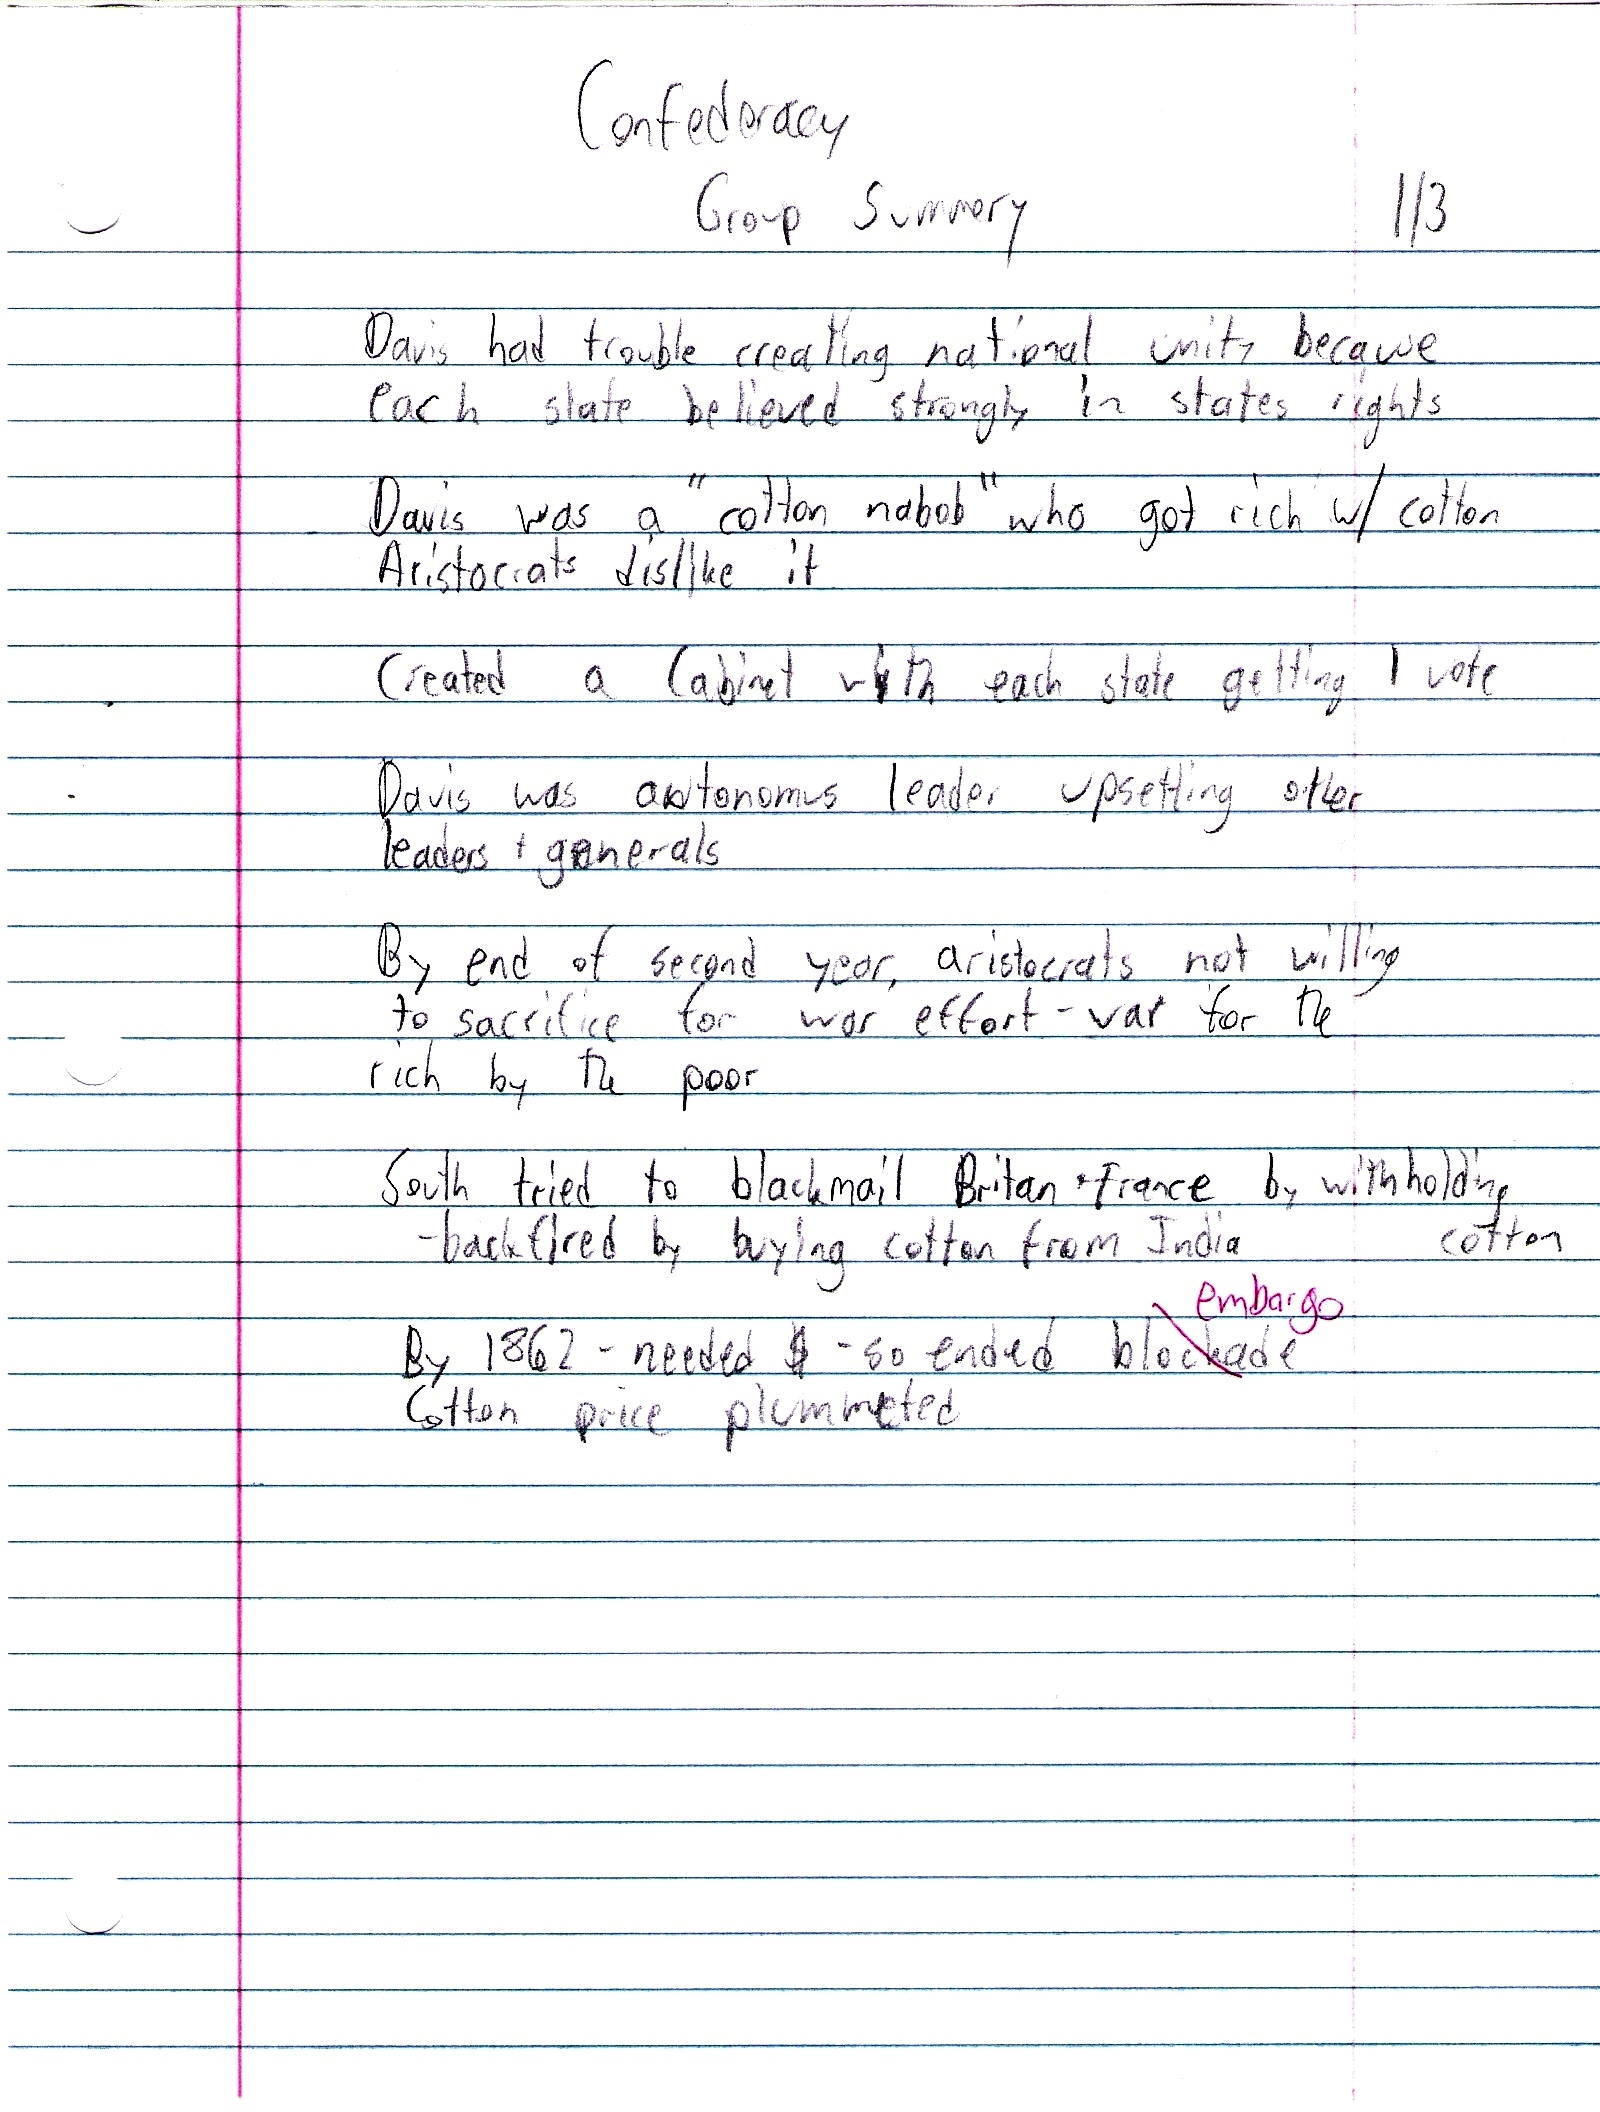 Confederacy
Group Summery
1/3
Davis had trouble creating national unity because
each state believed strongly in states rights
Davis was a "cotton nabob" who got rich w/ cotton
Aristocrats dislike it
Created a Cabinet with each state getting 1 vote
Davis was autonomus leader upsetting other
leaders + generals
By end of second year, aristocrats not willing
to sacrifice for war effort - war for the
rich by the poor
South tried to blackmail Britan + France by withholding
cotton
- backfired by buying cotton from India
embargo
By 1862 - needed $ - so ended blockade
Cotton price plummeted